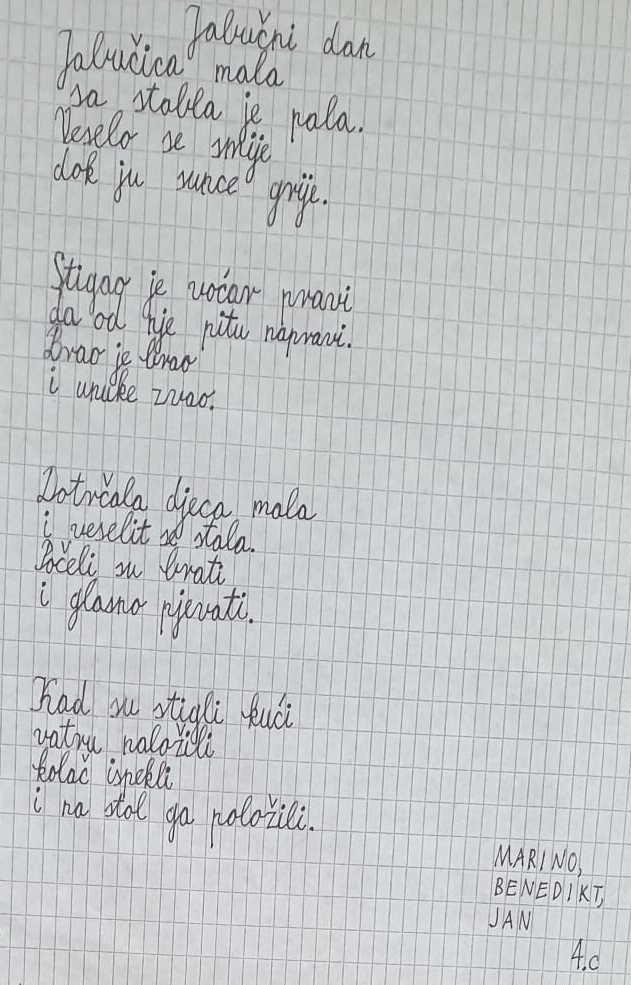 Jabučni dan
Jabučica mala
sa stabla je pala.
Veselo se smije
dok ju sunce grije.
Stigao je voćar pravi
da od nje pitu napravi.
Brao je brao
i unuke zvao.
Dotrčala djeca mala
i veselit se stala.
Počeli su brati
i glasno pjevati.
Kad su stigli kući
vatru naložili
kolač ispekli
i na stol ga položili.
MARINO,
BENEDIKT,
JAN
4.c